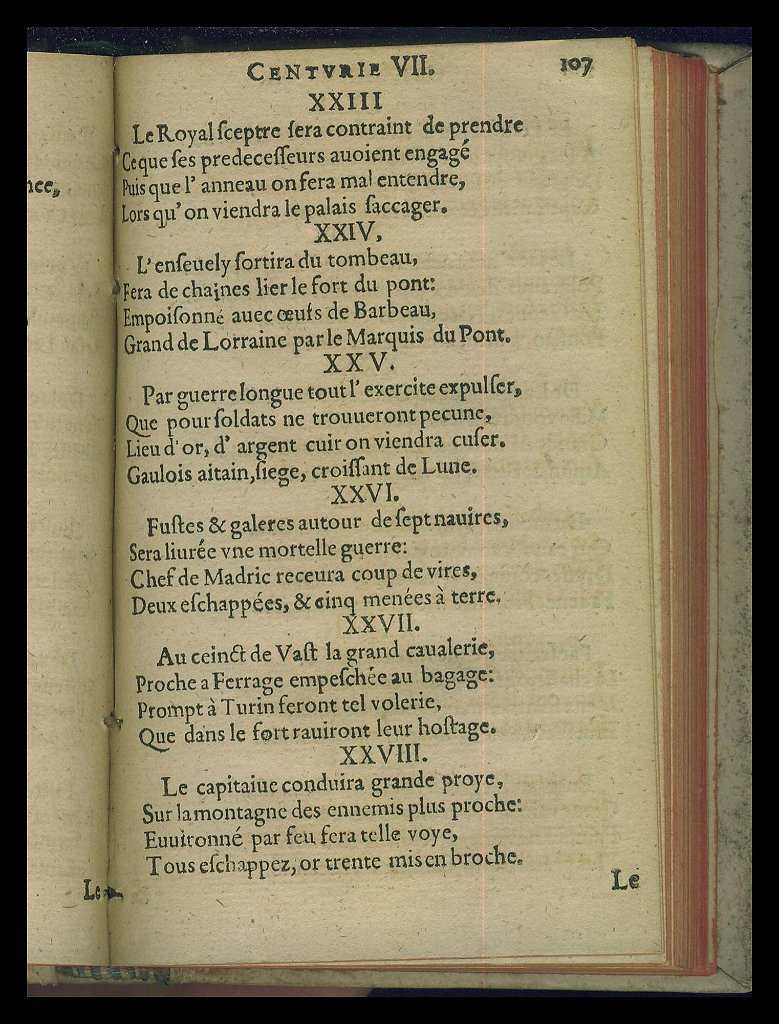 nce,
Le
CENTVRIE VII. 107
XXIII
Le Royal ſceptre ſera contraint de prendre
Ce que ſes predeceſſeurs auoient engagé
Puis que l' anneau on fera mal entendre,
Lors qu' on viendra le palais ſaccager.
XXIV,
L' enſeuely ſortira du tombeau,
Fera de chaines lier le fort du pont:
Empoiſonné auec œufs de Barbeau,
Grand de Lorraine par le Marquis du Pont.
XXV.
Par guerre longue tout l' exercite expulſer,
Que pour ſoldats ne trouueront pecune,
Lieu d' or, d' argent cuir on viendra cuſer.
Gaulois aitain, ſiege, croiſſant de Lune.
XXVI.
Fuſtes & galeres autour de ſept nauires,
Sera liurée vne mortelle guerre:
Chef de Madric receura coup de vires,
Deux eſchappées, & cinq menées à terre.
XXVII.
Au ceinct de Vaſt la grand caualerie,
Proche a Ferrage empeſchée au bagage:
Prompt à Turin feront tel volerie,
Que dans le fort rauiront leur hoſtage.
XXVIII.
Le capitaiue conduira grande proye,
Sur la montagne des ennemis plus proche:
Euuironné par feu fera telle voye,
Tous eſchappez, or trente mis en broche.
Le